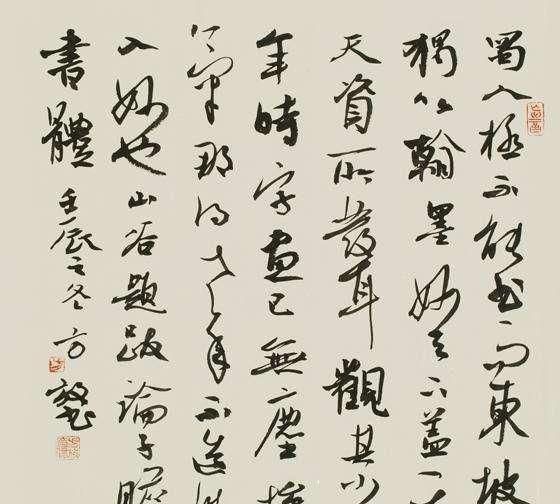 蜀人極不能書而東坡
獨以翰墨妙天下蓋
天資所發耳觀其少
年時字畫已無塵埃
氣那得老年不造微
入妙也山谷題跋論子瞻
書體壬辰之冬方